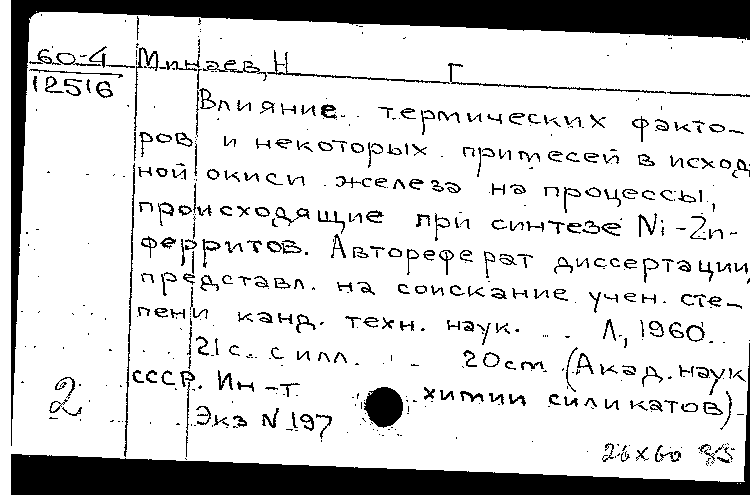 60-4 Минаев, Н Г
12516
Влияние термических факто-
ров и некоторых примесей в исход
ной окиси железа на процессы,
происходящие при синтезе Ni-Zn-
ферритов. Автореферат диссертации,
представл. на соискание учен. сте-
пени канд. техн. наук. Л., 1960.
21 с. с илл. 20 cm (Акад. наук
СССР. Ин-т химии силикатов)
2 Экз N 197
26 X 60